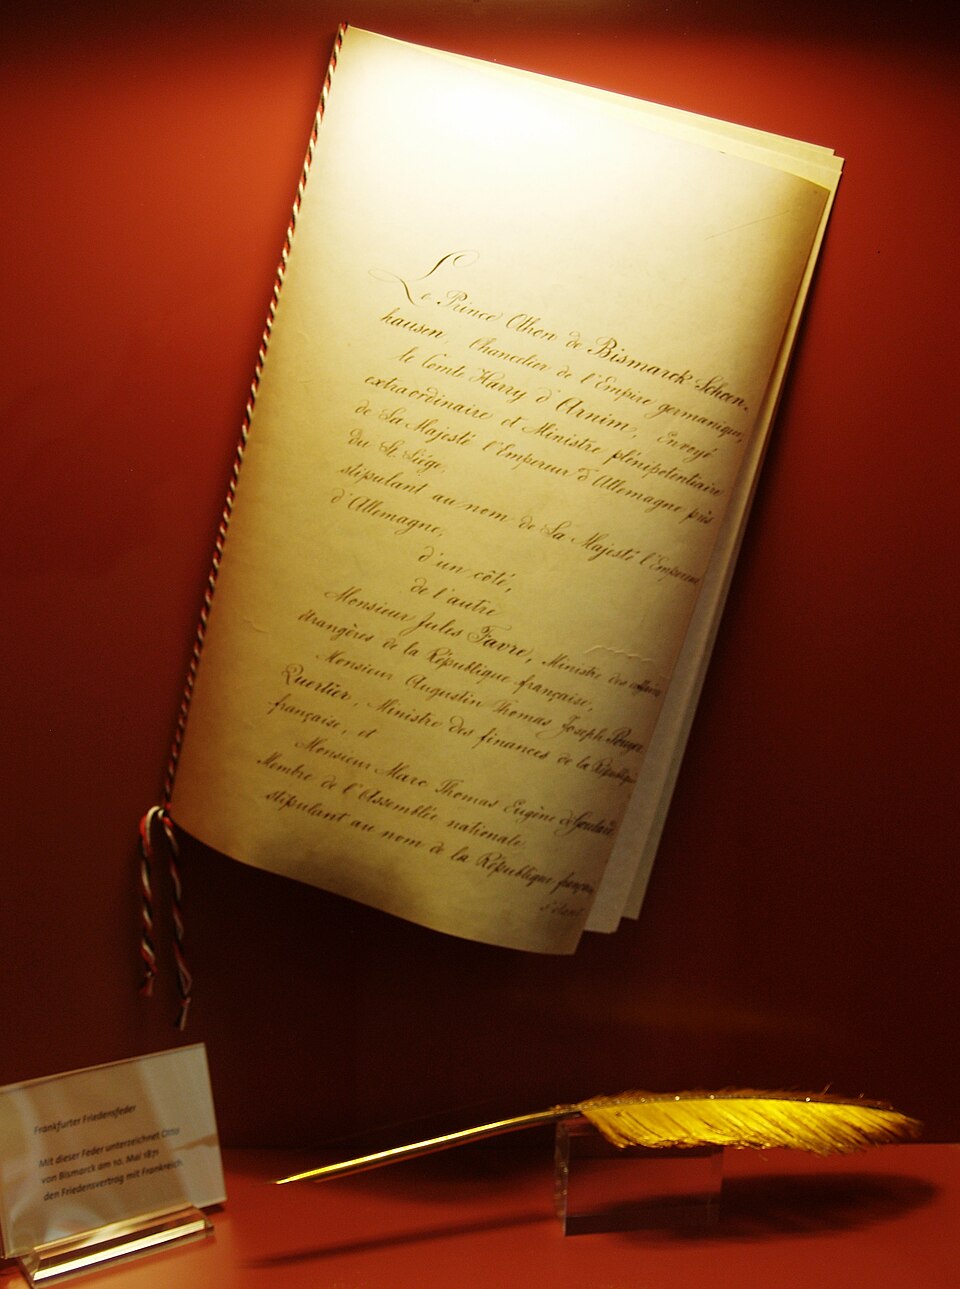 Le Prince Othon de Bismarck-Schoen-
hausen, Chancelier de l'Empire germanique,
le Comte Harry d'Arnim, Envoyé
extraordinaire et Ministre plénipotentiaire
de Sa Majesté l'Empereur d'Allemagne près
du St. Siége,
stipulant au nom de Sa Majesté l'Empereur
d'Allemagne,
d'un côté,
de l'autre
Monsieur Jules Favre, Ministre des affaires
étrangères de la République française,
Monsieur Augustin Thomas Joseph Pouyer-
Quertier, Ministre des finances de la République
française, et
Monsieur Marc Thomas Eugène de Goulard,
Membre de l'Assemblée nationale
stipulant au nom de la République française
s'étant
Frankfurter Friedensfeder
Mit dieser Feder unterzeichnet Otto
von Bismarck am 10. Mai 1871
den Friedensvertrag mit Frankreich